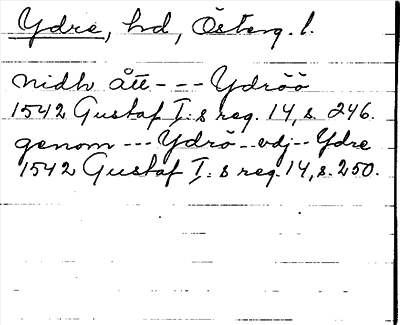 Ydre, hd, Österg. l.
nidhått - - - Ydröö
1542 Gustaf I:s reg. 14, s. 246.
genom --- Ydrö -- vdj -- Ydre
1542 Gustaf I:s reg. 14, s. 250.